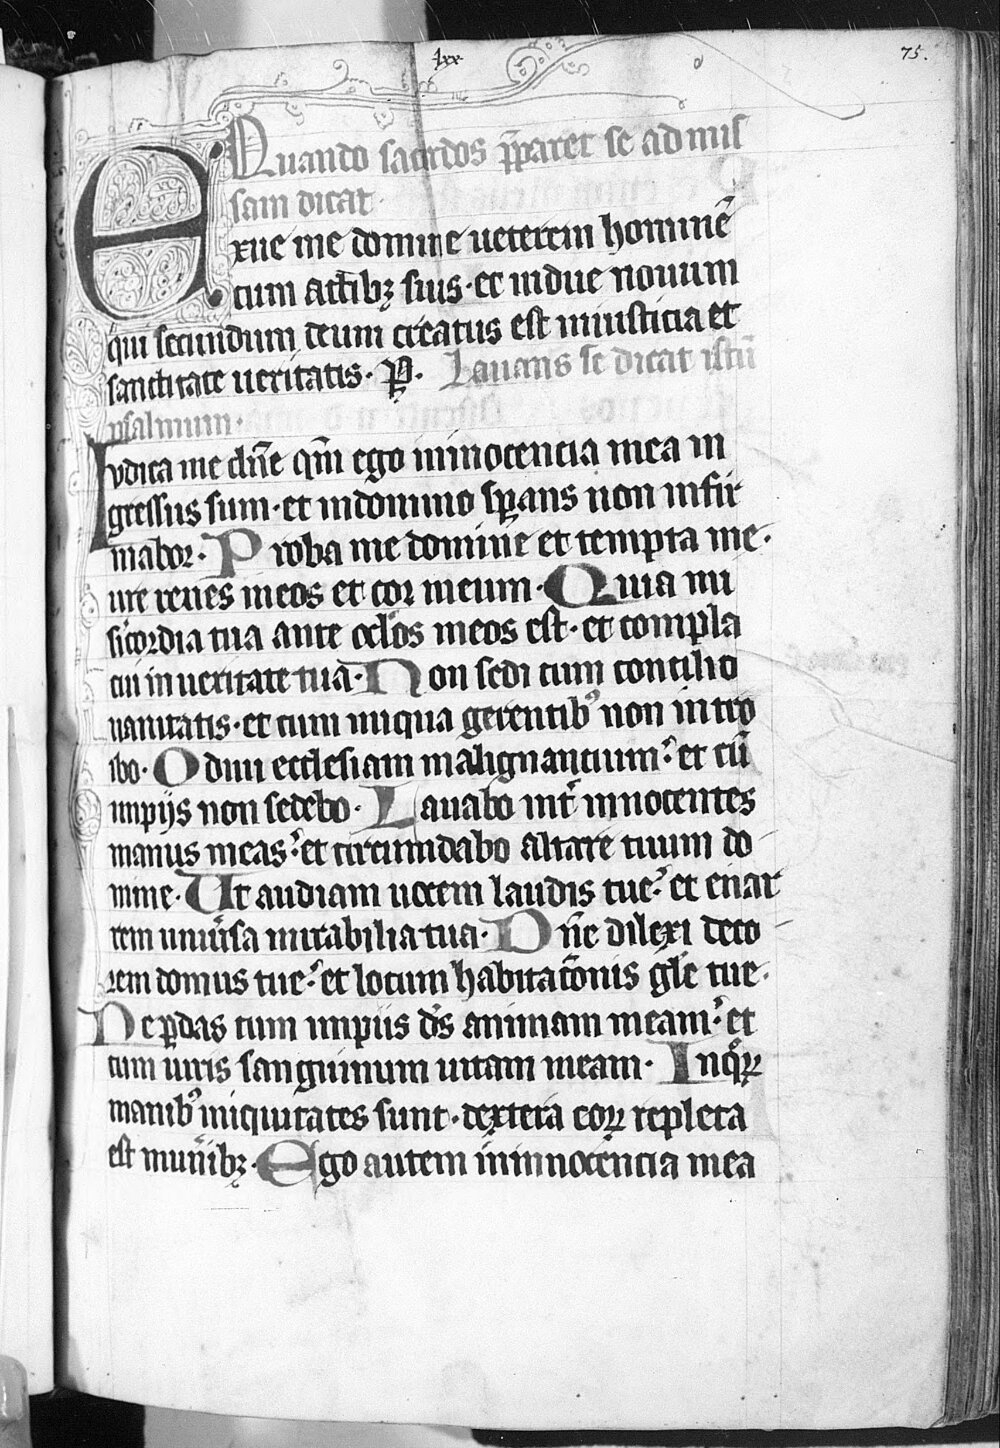 lxx
75.
Quando sacerdos p̄paret se ad mis
sam dicat.
Exue me domine ueterem hominē
cum actibꝫ suis · et indue nouum
qui secundum deum creatus est in iusticia et
sanctitate ueritatis. P̄. Lauans se dicat istū
psalmum.
Iudica me dn̄e qm̄ ego in innocencia mea in
gressus sum · et in domino sꝑans non infir
mabor. Proba me domine et tempta me ·
ure renes meos et cor meum. Quia mi
sicordia tua ante oclos meos est · et compla
cui in ueritate tua. Non sedi cum concilio
uanitatis · et cum iniqua gerentibꝰ non intro
ibo. Odiui ecclesiam malignancium : et cū
impijs non sedebo. Lauabo int̄ innocentes
manus meas : et circumdabo altare tuum do
mine. Ut audiam uocem laudis tue : et enar
rem uniu͛sa mirabilia tua. Dn̄e dilexi deco
rem domus tue : et locum habitac̄onis gl̄e tue.
Ne ꝑdas cum impiis d̄s animam meam : et
cum uiris sanguinum uitam meam. In qͦꝝ
manibꝰ iniquitates sunt · dextera eoꝝ repleta
est mun̄ibꝫ. Ego autem in innocencia mea